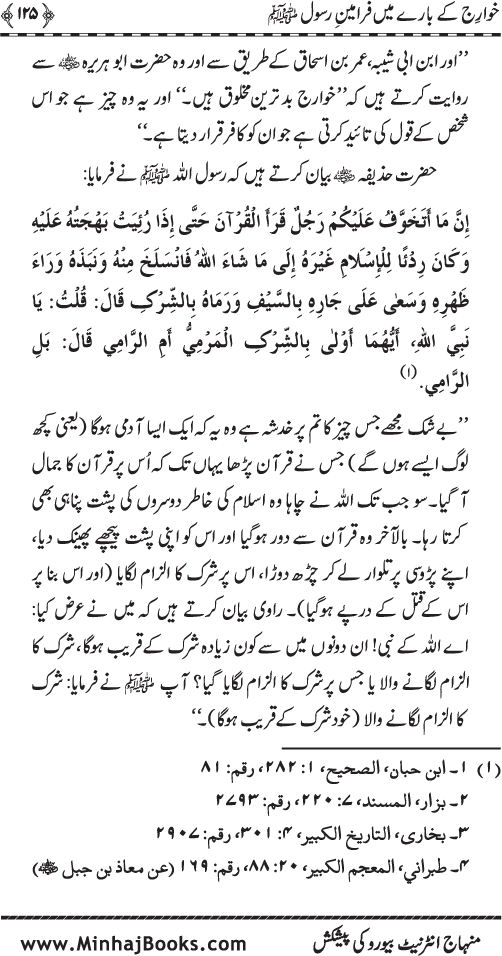 خوارِج کے بارے میں فرامینِ رسول ﷺ ﴿۱۲۵﴾
’’اور ابن ابی شیبہ، عمر بن اسحاق کے طریق سے اور وہ حضرت ابو ہریرہ ؓ سے
روایت کرتے ہیں کہ ’’خوارج بد ترین مخلوق ہیں۔‘‘ اور یہ وہ چیز ہے جو اس
شخص کے قول کی تائید کرتی ہے جو ان کو کافر قرار دیتا ہے۔‘‘
حضرت حذیفہ ؓ بیان کرتے ہیں کہ رسول اللہ ﷺ نے فرمایا:
إِنَّ مَا أَتَخَوَّفُ عَلَيْكُمْ رَجُلٌ قَرَأَ الْقُرْآنَ حَتَّى إِذَا رُئِيَتْ بَهْجَتُهُ عَلَيْهِ
وَكَانَ رِدْئًا لِلْإِسْلَامِ غَيْرَهُ إِلَى مَا شَاءَ اللهُ فَانْسَلَخَ مِنْهُ وَنَبَذَهُ وَرَاءَ
ظَهْرِهِ وَسَعَى عَلَى جَارِهِ بِالسَّيْفِ وَرَمَاهُ بِالشِّرْكِ قَالَ: قُلْتُ: يَا
نَبِيَّ اللهِ، أَيُّهُمَا أَوْلَى بِالشِّرْكِ الْمَرْمِيُّ أَمِ الرَّامِي قَالَ: بَلِ
الرَّامِي. (۱)
’’بے شک مجھے جس چیز کا تم پر خدشہ ہے وہ یہ کہ ایک ایسا آدمی ہوگا (یعنی کچھ
لوگ ایسے ہوں گے) جس نے قرآن پڑھا یہاں تک کہ اُس پر قرآن کا جمال
آ گیا۔سو جب تک اللہ نے چاہا وہ اسلام کی خاطر دوسروں کی پشت پناہی بھی
کرتا رہا۔ بالآخر وہ قرآن سے دور ہوگیا اور اس کو اپنی پشت پیچھے پھینک دیا،
اپنے پڑوسی پر تلوار لے کر چڑھ دوڑا، اس پر شرک کا الزام لگایا (اور اس بنا پر
اس کے قتل کے درپے ہوگیا)۔ راوی بیان کرتے ہیں کہ میں نے عرض کیا:
اے اللہ کے نبی! ان دونوں میں سے کون زیادہ شرک کے قریب ہوگا، شرک کا
الزام لگانے والا یا جس پر شرک کا الزام لگایا گیا؟ آپ ﷺ نے فرمایا: شرک
کا الزام لگانے والا (خود شرک کے قریب ہوگا)۔‘‘
(۱) ۱۔ ابن حبان، الصحیح، ۱: ۲۸۲، رقم: ۸۱
۲۔ بزار، المسند، ۷: ۲۲۰، رقم: ۲۷۹۳
۳۔ بخاری، التاریخ الکبیر، ۴: ۳۰۱، رقم: ۲۹۰۷
۴۔ طبرانی، المعجم الکبیر، ۲۰: ۸۸، رقم: ۱۶۹ (عن معاذ بن جبل ؓ)
منہاج انٹرنیٹ بیورو کی پیشکش www.MinhajBooks.com